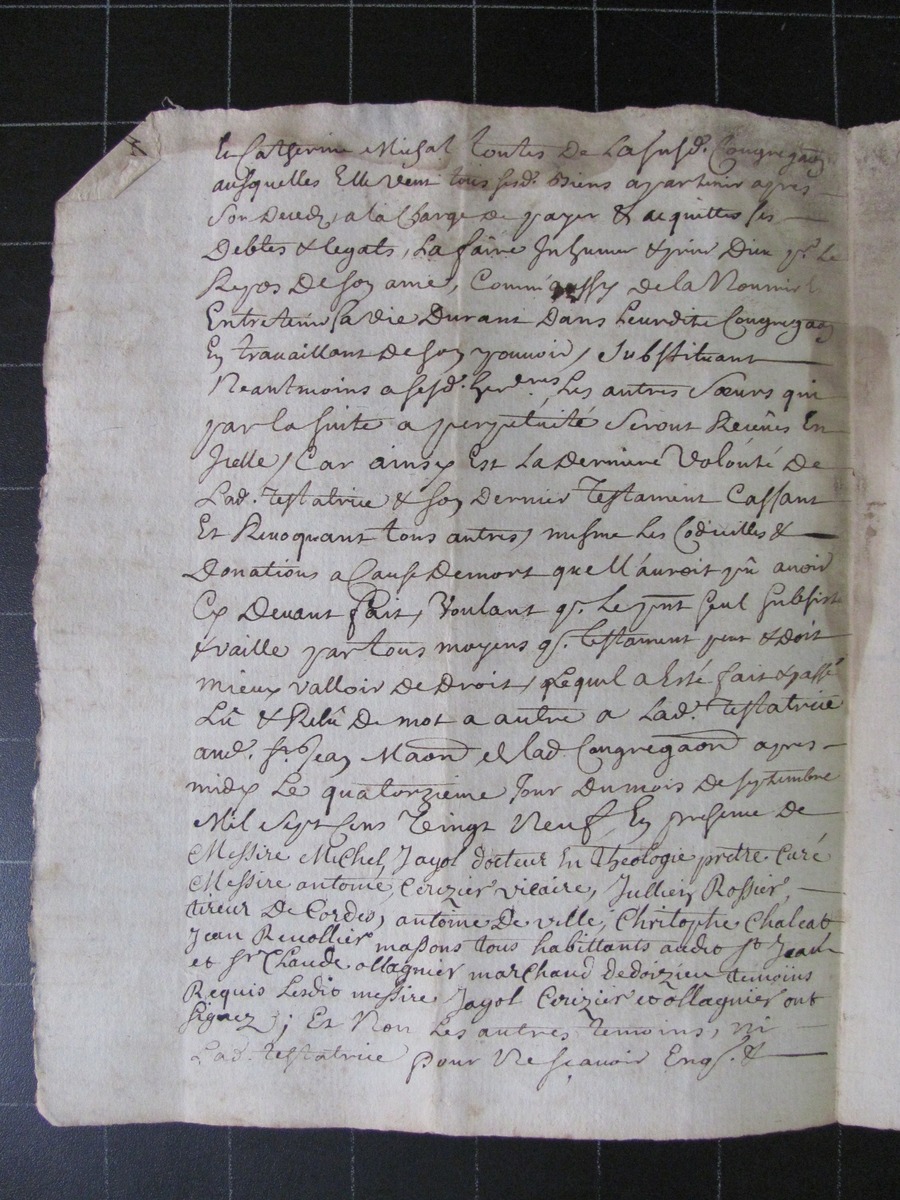 et Catherine Michal toutes De La susd. Congregaon
ausquelles Elle veut tous sesd. Biens apartenir apres
son Deceds, a la Charge de payer & acquitter ses
Debtes & legats, La faire Inhumer & prier Dieu pr. Le
Repos De son ame, Comm' aussy de la Nourrir &
Entretenir sa vie Durant Dans Leurdite Congregaon
En travaillant de son pouvoir, Substituant
Neantmoins a sesd. herres. Les autres Sœurs qui
par la suite a perpetuité seront Receües En
Icelle, Car ainsy Est La Derniere Volonté De
Lad. Testatrice & son Dernier Testament Cassant
Et Revoquant tous autres, mesme Les Codicilles &
Donations a Cause Demort quell'auroit pû avoir
Cy Devant fait, Voulant q. Le pnt seul subsiste
& vaille par tous moyens q. Testament peut & doit
mieux valloir de Droit, Lequel a Esté fait & passé
Lû & Relû De mot a autre a Lad. Testatrice
aud. St. Jean Maon de lad Congregaon apres
midy Le quatorzieme Jour Dumois De septembre
Mil Sept Cens Vingt Neuf, En presence De
Messire Michel Jayol docteur En Theologie prêtre Curé
Messire antoine Cerizier vicaire, Jullien Rossier,
tireur De Cordes, antoine De ville, Christophe Chaleat
Jean Revollier massons tous habittants audit St. Jean
et Sr. Claude ollagnier marchand dedoizieu temoins
Requis Lesdits messire Jayol Cerizier et ollagnier ont
signez; Et Non Les autres Temoins, ni
Lad. Testatrice pour Ne scavoir Enqs. &